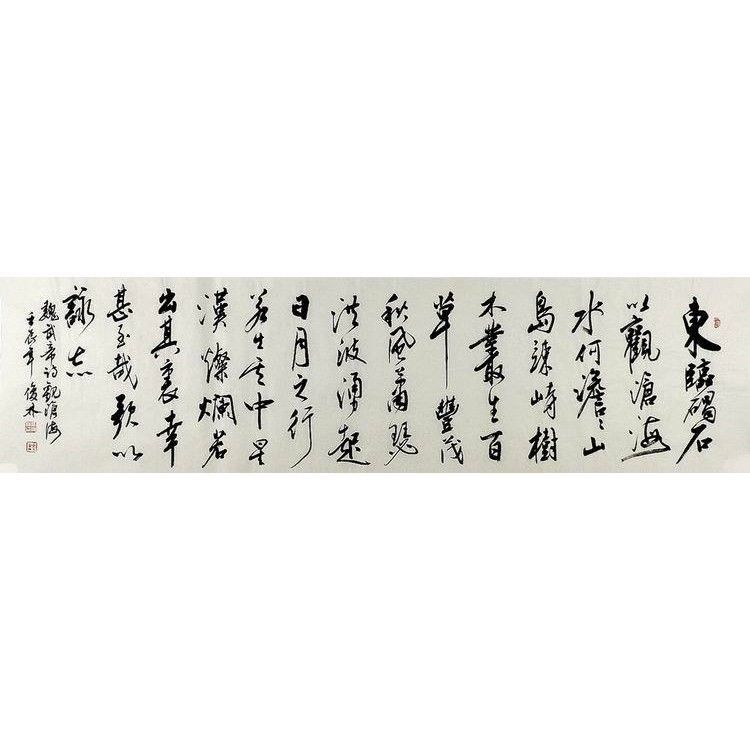 東臨碣石
以觀滄海
水何澹〻山
島竦峙樹
木叢生百
草豐茂
秋風蕭瑟
洪波湧起
日月之行
若出其中星
漢燦爛若
出其裏幸
甚至哉歌以
詠志
魏武帝詩觀滄海
壬辰年俊林